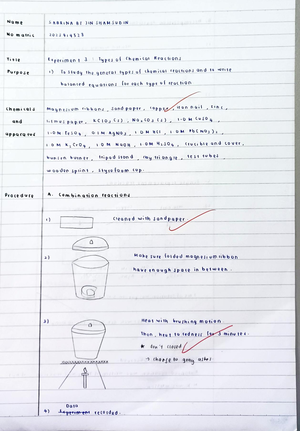 Name SABRINA BT SHAMSUDIN
No matric
Title Experiment 3 : Types of Chemical Reactions
Purpose 1) To study the general types of chemical reactions and to write
balanced equations for each type of reaction.
Chemicals Magnesium ribbons, sand paper, copper, iron nail, zinc,
and litmus paper, KClO3 (s), 1.0M CuSO4,
apparatus 1.0M FeSO4, 0.1M AgNO3, 1.0M KCl, 1.0M Pb(NO3)2,
1.0M K2CrO4, 1.0M NaOH, 1.0M H2SO4, crucible and cover,
bunsen burner, tripod stand, clay triangle, test tubes,
wooden splint, styrofoam cup.
Procedure A. Combination reactions
1) cleaned with sandpaper
2) Make sure folded magnesium ribbon
have enough space in between.
3) Heat with brushing motion
Then, heat to redness for 3 minutes.
* Don't closed
→ change to grey ashes
Data
4) recorded.